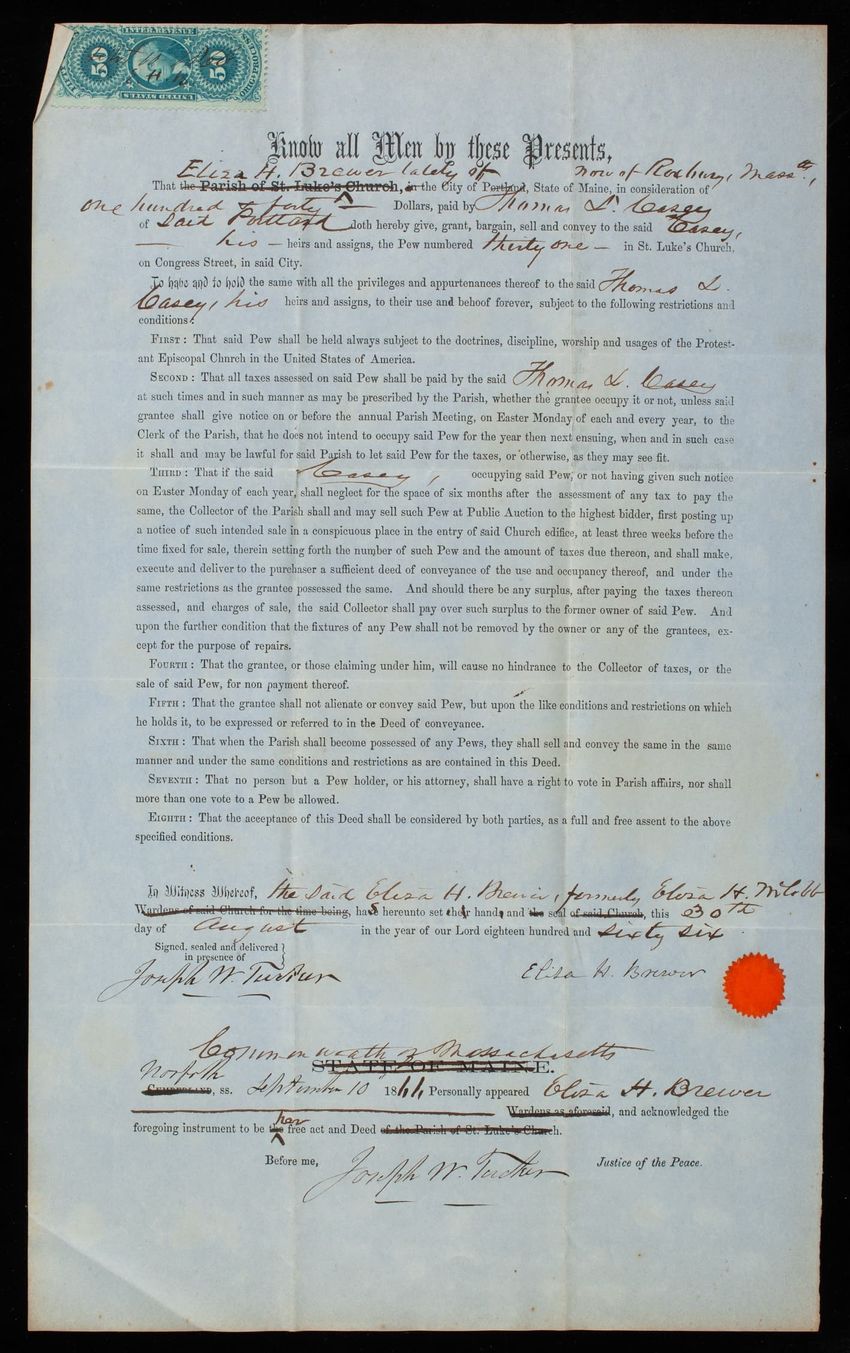 INTER. REVENUE
50 50
UNITED STATES
Know all Men by these Presents,
Eliza H. Brewer lately of now of Roxbury, Masstts.,
That the Parish of St. Luke's Church, in the City of Portland, State of Maine, in consideration of
one hundred & forty — Dollars, paid by Thomas L. Casey
of Said Portland doth hereby give, grant, bargain, sell and convey to the said Casey,
— his — heirs and assigns, the Pew numbered thirty one — in St. Luke's Church,
on Congress Street, in said City.
To have and to hold the same with all the privileges and appurtenances thereof to the said Thomas L.
Casey, his heirs and assigns, to their use and behoof forever, subject to the following restrictions and
conditions:
FIRST: That said Pew shall be held always subject to the doctrines, discipline, worship and usages of the Protest-
ant Episcopal Church in the United States of America.
SECOND: That all taxes assessed on said Pew shall be paid by the said Thomas L. Casey
at such times and in such manner as may be prescribed by the Parish, whether the grantee occupy it or not, unless said
grantee shall give notice on or before the annual Parish Meeting, on Easter Monday of each and every year, to the
Clerk of the Parish, that he does not intend to occupy said Pew for the year then next ensuing, when and in such case
it shall and may be lawful for said Parish to let said Pew for the taxes, or otherwise, as they may see fit.
THIRD: That if the said Casey, occupying said Pew, or not having given such notice
on Easter Monday of each year, shall neglect for the space of six months after the assessment of any tax to pay the
same, the Collector of the Parish shall and may sell such Pew at Public Auction to the highest bidder, first posting up
a notice of such intended sale in a conspicuous place in the entry of said Church edifice, at least three weeks before the
time fixed for sale, therein setting forth the number of such Pew and the amount of taxes due thereon, and shall make,
execute and deliver to the purchaser a sufficient deed of conveyance of the use and occupancy thereof, and under the
same restrictions as the grantee possessed the same. And should there be any surplus, after paying the taxes thereon
assessed, and charges of sale, the said Collector shall pay over such surplus to the former owner of said Pew. And
upon the further condition that the fixtures of any Pew shall not be removed by the owner or any of the grantees, ex-
cept for the purpose of repairs.
FOURTH: That the grantee, or those claiming under him, will cause no hindrance to the Collector of taxes, or the
sale of said Pew, for non payment thereof.
FIFTH: That the grantee shall not alienate or convey said Pew, but upon the like conditions and restrictions on which
he holds it, to be expressed or referred to in the Deed of conveyance.
SIXTH: That when the Parish shall become possessed of any Pews, they shall sell and convey the same in the same
manner and under the same conditions and restrictions as are contained in this Deed.
SEVENTH: That no person but a Pew holder, or his attorney, shall have a right to vote in Parish affairs, nor shall
more than one vote to a Pew be allowed.
EIGHTH: That the acceptance of this Deed shall be considered by both parties, as a full and free assent to the above
specified conditions.
In Witness Whereof, the said Eliza H. Brewer, formerly Eliza H.
Wardens of said Church for the time being, has hereunto set her hand, and the seal of said Church, this 30th
day of August in the year of our Lord eighteen hundred and sixty six.
Signed, sealed and delivered
in presence of
Joseph W. Tucker Eliza H. Brewer
Commonwealth of Massachusetts
STATE OF MAINE.
Norfolk
CUMBERLAND, ss. September 10 1866 Personally appeared Eliza H. Brewer
Wardens as aforesaid, and acknowledged the
her
foregoing instrument to be the free act and Deed of the Parish of St. Luke's Church.
Before me, Joseph W. Tucker Justice of the Peace.